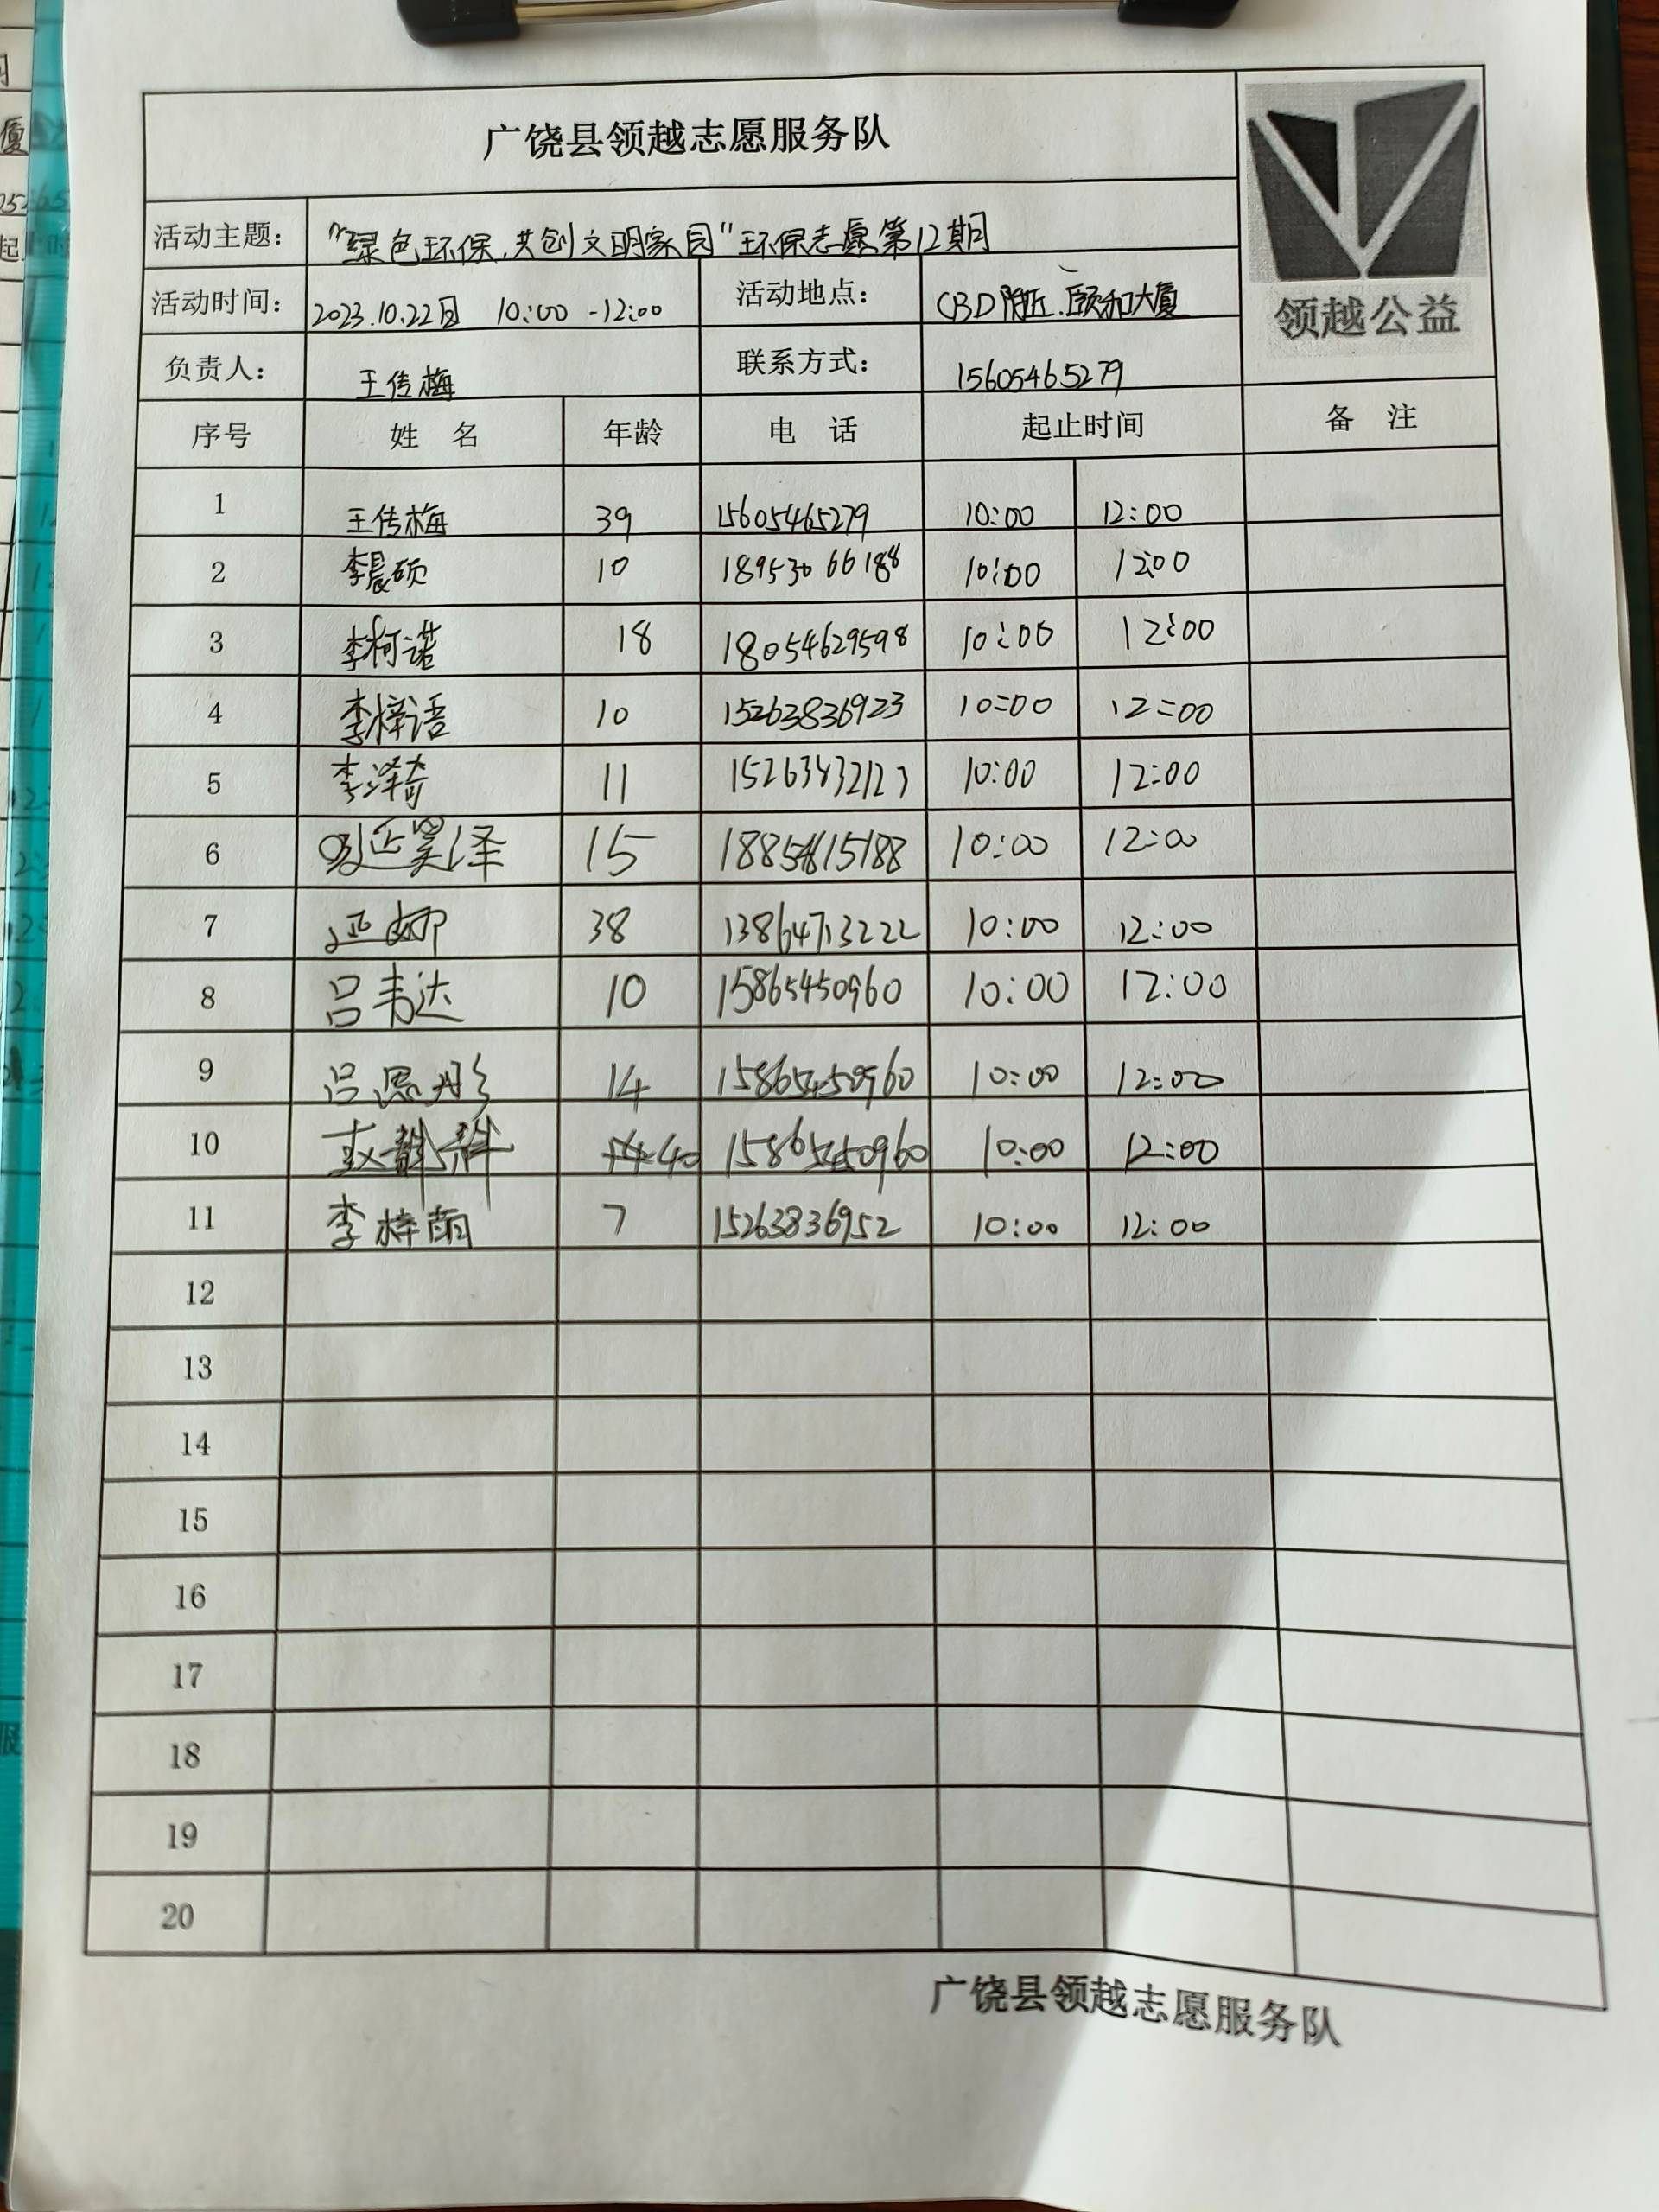 广饶县领越志愿服务队
领越公益
活动主题： "绿色环保,共创文明家园"环保志愿第12期
活动时间： 2023.10.22日 10:00 -12:00 活动地点： CBD附近.颐和大厦
负责人： 王传梅 联系方式： 15605465279
序号 姓 名 年龄 电 话 起止时间 备 注
1 王传梅 39 15605465279 10:00 12:00
2 李晨硕 10 18953066188 10:00 12:00
3 李柯诺 18 18054629598 10:00 12:00
4 李梓语 10 15263836923 10:00 12:00
5 李泽奇 11 10:00 12:00
6 延昊泽 15 10:00 12:00
7 延娜 38 13864713222 10:00 12:00
8 吕韦达 10 15865450960 10:00 12:00
9 吕恩彤 14 15865450960 10:00 12:00
10 赵 40 15865450960 10:00 12:00
11 李梓萌 7 15263836952 10:00 12:00
12
13
14
15
16
17
18
19
20
广饶县领越志愿服务队